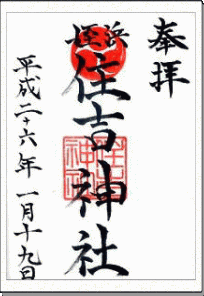 奉拝
姪浜
住吉神社
平成二十六年一月十九日